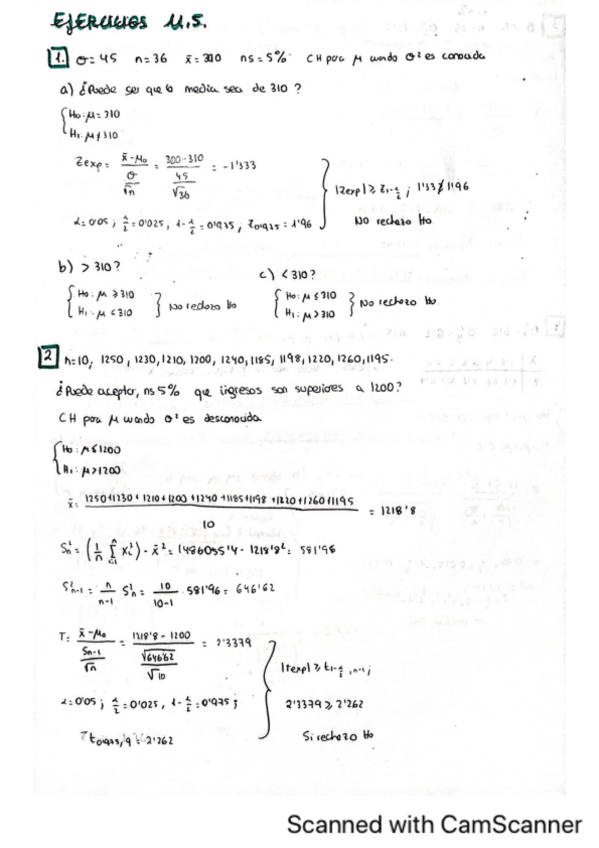 EJERCICIOS U.5.
1. σ=45 n=36 x̄=300 ns=5% CH para μ cuando σ² es conocida
a) ¿Puede ser que la media sea de 310?
{H₀: μ=310
H₁: μ≠310
Zexp = (x̄-μ₀)/(σ/√n) = (300-310)/(45/√36) = -1'333
|Zexp| ≥ Z₁₋α/₂ ; 1'33 ≱ 1'96
No rechazo H₀
α=0'05 ; α/2=0'025, 1-α/2=0'975 ; Z₀'₉₇₅=1'96
b) > 310? c) < 310?
{H₀: μ ≥ 310
H₁: μ < 310} No rechazo H₀
{H₀: μ ≤ 310
H₁: μ > 310} No rechazo H₀
2 n=10, 1250, 1230, 1210, 1200, 1240, 1185, 1198, 1220, 1260, 1195.
¿Puede aceptar, ns 5% que ingresos son superiores a 1200?
CH para μ cuando σ² es desconocida
{H₀: μ ≤ 1200
H₁: μ > 1200
x̄ = (1250+1230+1210+1200+1240+1185+1198+1220+1260+1195)/10 = 1218'8
Sₙ² = (1/n Σ xᵢ²) - x̄² = 1486055'4 - 1218'8² = 581'96
S²ₙ₋₁ = n/(n-1) Sₙ² = 10/(10-1) · 581'96 = 646'62
T = (x̄-μ₀)/(Sₙ₋₁/√n) = (1218'8-1200)/(√646'62/√10) = 2'3379
|texp| ≥ t₁₋α/₂, ₙ₋₁ ;
α=0'05 ; α/2=0'025, 1-α/2=0'975 ;
2'3379 ≥ 2'262
t₀'₉₇₅,₉ = 2'262
Si rechazo H₀
Scanned with CamScanner